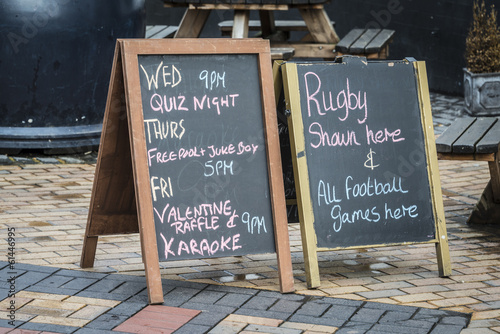 WED 9PM
QUIZ NIGHT
THURS
FREE POOL + JUKE BOX
5PM
FRI
VALENTINE
RAFFLE & 9PM
KARAOKE
Rugby
Shawn here
&
All football
games here
© 61446995